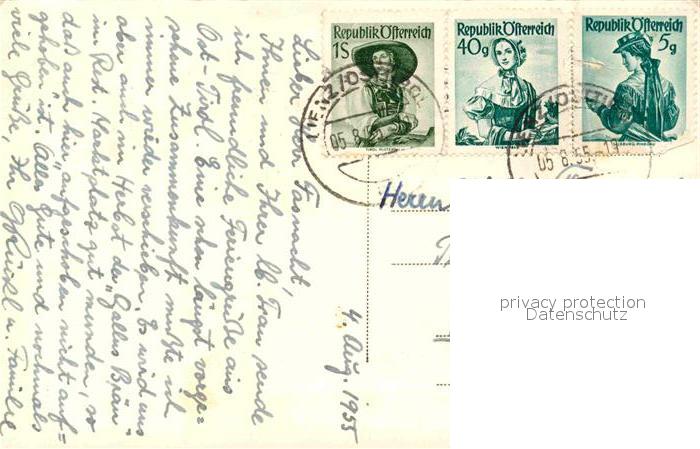 Republik Österreich
1S
Republik Österreich
40g
Republik Österreich
5g
05.8.
05.8.55-19
Herrn
privacy protection
Datenschutz
4. Aug. 1955
Lieber Fasnacht,
Ihnen und Ihrer lb. Frau sende
ich freundliche Feriengrüße aus
Ost-Tirol. Eine schon längst vorge=
sehene Zusammenkunft mußte ich
immer wieder verschieben. Es wird uns
aber auch im Herbst der "Gallus Bräu"
im Rest. Marktplatz gut munden, so
daß auch hier "aufgeschoben nicht auf=
gehoben" ist. Alles Gute und nochmals
viele Grüße, Ihr u. Familie